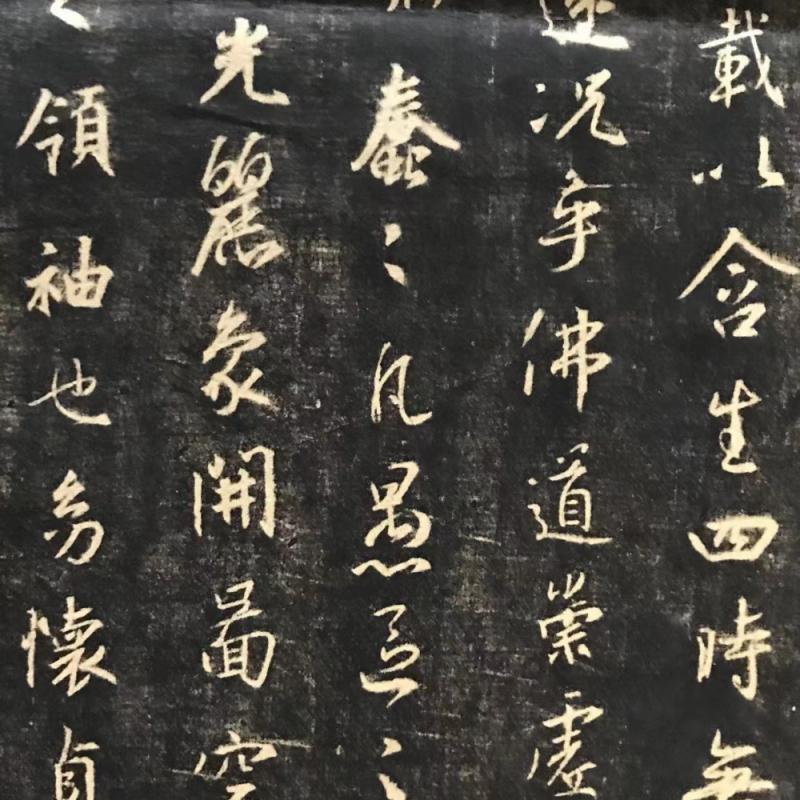 載以含生四時無
迷況乎佛道崇虛
蠢〻凡愚區〻
光麗象開圖空
之領袖也幼懷貞